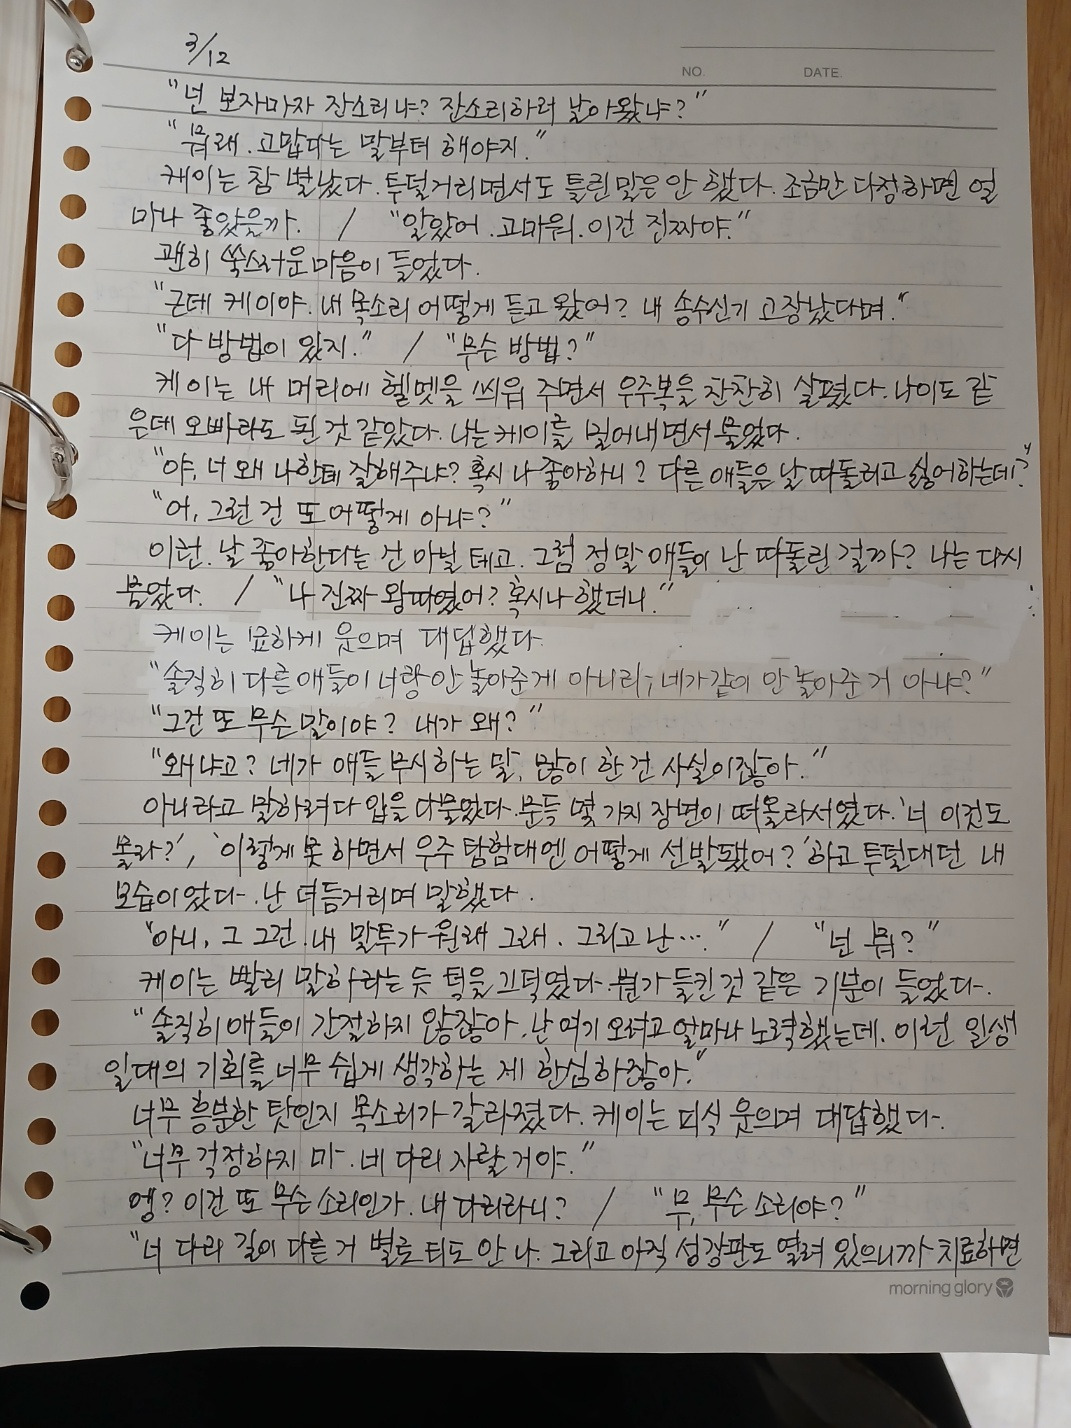 3/12
NO. DATE.
"넌 보자마자 잔소리냐? 잔소리하러 날아왔냐?"
"뭐래. 고맙다는 말부터 해야지."
케이는 참 별났다. 투덜거리면서도 틀린 말은 안 했다. 조금만 다정하면 얼
마나 좋았을까. / "알았어. 고마워. 이건 진짜야."
괜히 쑥스러운 마음이 들었다.
"근데 케이야. 내 목소리 어떻게 듣고 왔어? 내 송수신기 고장났다며."
"다 방법이 있지." / "무슨 방법?"
케이는 내 머리에 헬멧을 씌워 주면서 우주복을 찬찬히 살폈다. 나이도 같
은데 오빠라도 된 것 같았다. 나는 케이를 밀어내면서 물었다.
"야, 너 왜 나한테 잘해주냐? 혹시 나 좋아하니? 다른 애들은 날 따돌리고 싫어하는데?"
"어, 그런 건 또 어떻게 아냐?"
이런. 날 좋아한다는 건 아닐 테고. 그럼 정말 애들이 난 따돌린 걸까? 나는 다시
물었다. / "나 진짜 왕따였어? 혹시나 했더니."
케이는 묘하게 웃으며 대답했다.
"솔직히 다른 애들이 너랑 안 놀아준게 아니라, 네가 같이 안 놀아준 거 아냐?"
"그건 또 무슨 말이야? 내가 왜?"
"왜냐고? 네가 애들 무시하는 말, 많이 한 건 사실이잖아."
아니라고 말하려다 입을 다물었다. 문득 몇 가지 장면이 떠올라서였다. '너 이것도
몰라?', '이렇게 못 하면서 우주 탐험대엔 어떻게 선발됐어?' 하고 투덜대던 내
모습이었다. 난 더듬거리며 말했다.
"아니, 그 그건. 내 말투가 원래 그래. 그리고 난…." / "넌 뭐?"
케이는 빨리 말하라는 듯 턱을 끄덕였다. 뭔가 들킨 것 같은 기분이 들었다.
"솔직히 애들이 간절하지 않잖아. 난 여기 오려고 얼마나 노력했는데. 이런 일생
일대의 기회를 너무 쉽게 생각하는 게 한심하잖아."
너무 흥분한 탓인지 목소리가 갈라졌다. 케이는 피식 웃으며 대답했다.
"너무 걱정하지 마. 네 다리 자랄 거야."
엥? 이건 또 무슨 소리인가. 내 다리라니? / "무, 무슨 소리야?"
"너 다리 길이 다른 거 별로 티도 안 나. 그리고 아직 성장판도 열려 있으니까 치료하면
morning glory